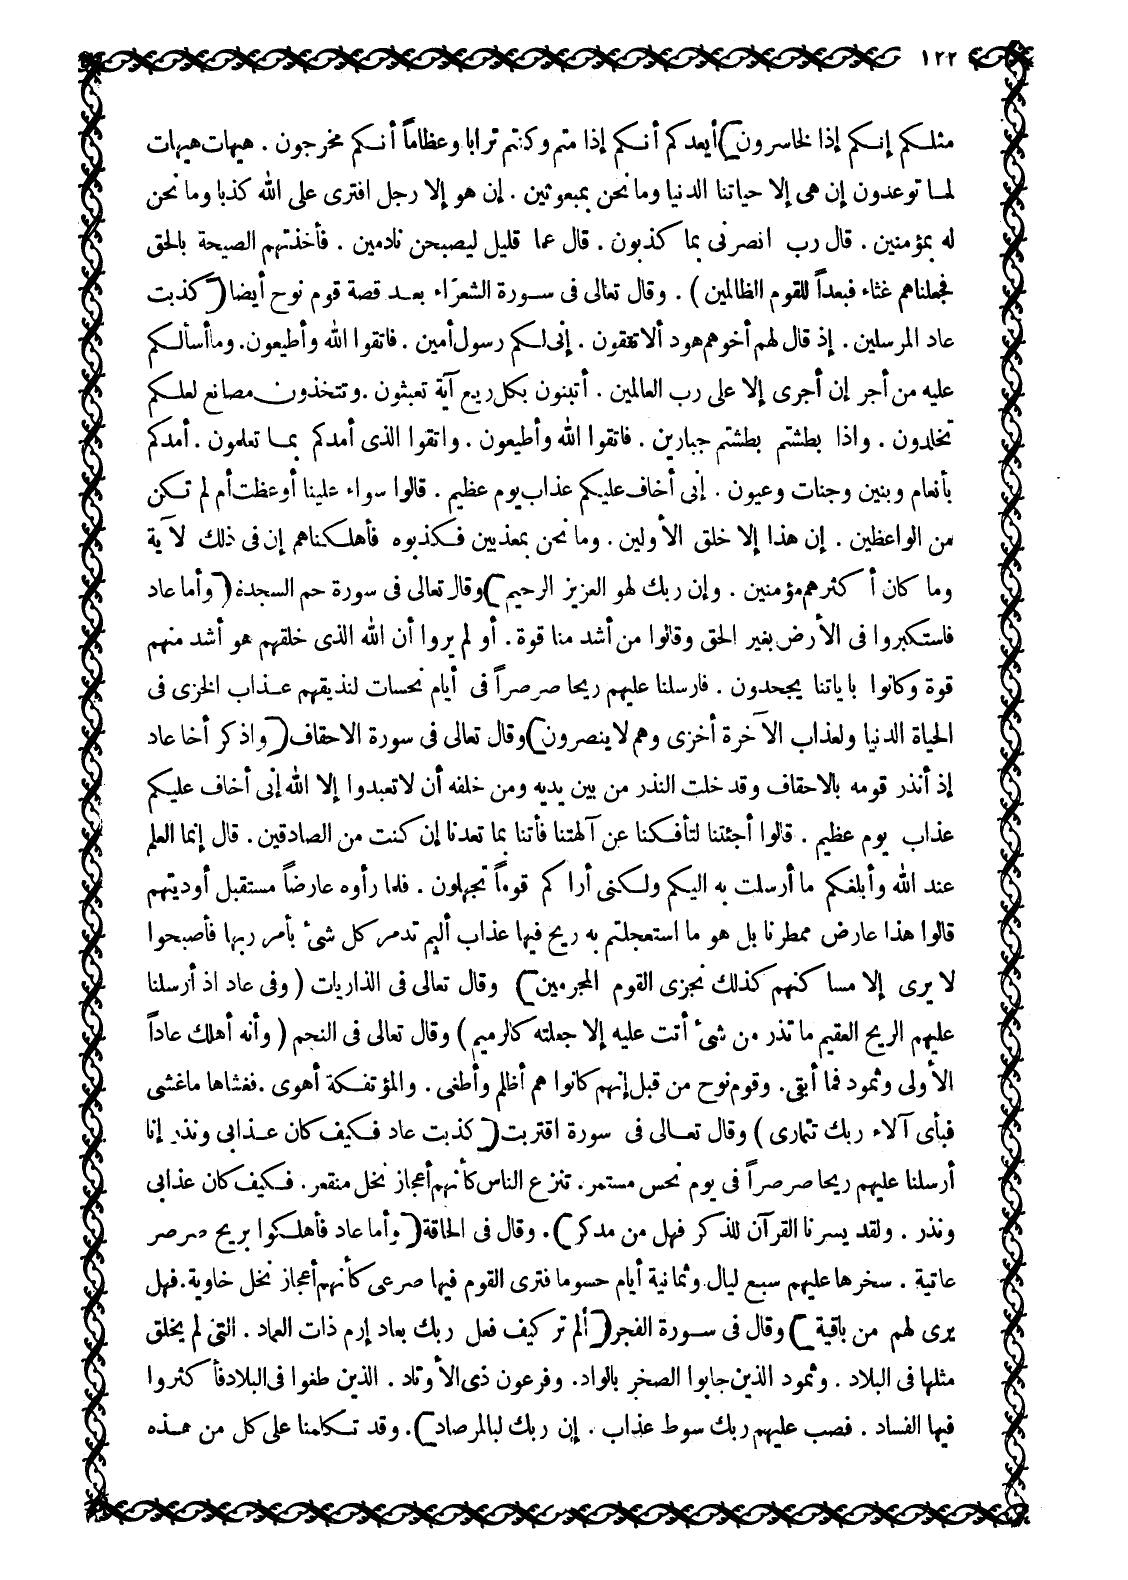 ١٢٢
مثلكم إنكم إذا لخاسرون) أيعدكم أنكم إذا متم وكنتم ترابا وعظاماً أنكم مخرجون . هيهات هيهات
لما توعدون إن هى إلا حياتنا الدنيا وما نحن بمبعوثين . إن هو إلا رجل افترى على الله كذبا وما نحن
له بمؤمنين . قال رب انصرنى بما كذبون . قال عما قليل ليصبحن نادمين . فأخذتهم الصيحة بالحق
فجعلناهم غثاء فبعداً للقوم الظالمين ) . وقال تعالى فى سورة الشعراء بعد قصة قوم نوح أيضا ( كذبت
عاد المرسلين . إذ قال لهم أخوهم هود ألا تتقون . إنى لكم رسول أمين . فاتقوا الله وأطيعون . وما أسألكم
عليه من أجر إن أجرى إلا على رب العالمين . أتبنون بكل ريع آية تعبثون . وتتخذون مصانع لعلكم
تخلدون . واذا بطشتم بطشتم جبارين . فاتقوا الله وأطيعون . واتقوا الذى أمدكم بما تعلمون . أمدكم
بأنعام وبنين وجنات وعيون . إنى أخاف عليكم عذاب يوم عظيم . قالوا سواء علينا أوعظت أم لم تكن
من الواعظين . إن هذا إلا خلق الأولين . وما نحن بمعذبين فكذبوه فأهلكناهم إن فى ذلك لآية
وما كان أكثرهم مؤمنين . وإن ربك لهو العزيز الرحيم ) وقال تعالى فى سورة حم السجدة ( وأما عاد
فاستكبروا فى الأرض بغير الحق وقالوا من أشد منا قوة . أو لم يروا أن الله الذى خلقهم هو أشد منهم
قوة وكانوا باياتنا يجحدون . فارسلنا عليهم ريحا صرصراً فى أيام نحسات لنذيقهم عذاب الخزى فى
الحياة الدنيا ولعذاب الآخرة أخزى وهم لا ينصرون ) وقال تعالى فى سورة الاحقاف ( واذكر أخا عاد
إذ أنذر قومه بالاحقاف وقد خلت النذر من بين يديه ومن خلفه أن لا تعبدوا إلا الله إنى أخاف عليكم
عذاب يوم عظيم . قالوا أجئتنا لتأفكنا عن آلهتنا فأتنا بما تعدنا إن كنت من الصادقين . قال إنما العلم
عند الله وأبلغكم ما أرسلت به اليكم ولكنى أراكم قوماً تجهلون . فلما رأوه عارضاً مستقبل أوديتهم
قالوا هذا عارض ممطرنا بل هو ما استعجلتم به ريح فيها عذاب أليم تدمر كل شىء بأمر ربها فأصبحوا
لا يرى إلا مساكنهم كذلك نجزى القوم المجرمين ) وقال تعالى فى الذاريات ( وفى عاد اذ أرسلنا
عليهم الريح العقيم ما تذر من شىء أتت عليه إلا جعلته كالرميم ) وقال تعالى فى النجم ( وأنه أهلك عاداً
الأولى وثمود فما أبقى . وقوم نوح من قبل إنهم كانوا هم أظلم وأطغى . والمؤتفكة أهوى . فغشاها ماغشى
فبأى آلاء ربك تتمارى ) وقال تعالى فى سورة اقتربت ( كذبت عاد فكيف كان عذابى ونذر إنا
أرسلنا عليهم ريحا صرصراً فى يوم نحس مستمر . تنزع الناس كأنهم أعجاز نخل منقعر . فكيف كان عذابى
ونذر . ولقد يسرنا القرآن للذكر فهل من مدكر ) . وقال فى الحاقة ( وأما عاد فأهلكوا بريح صرصر
عاتية . سخرها عليهم سبع ليال وثمانية أيام حسوما فترى القوم فيها صرعى كأنهم أعجاز نخل خاوية . فهل
يرى لهم من باقية ) وقال فى سورة الفجر ( ألم تر كيف فعل ربك بعاد إرم ذات العماد . التى لم يخلق
مثلها فى البلاد . وثمود الذين جابوا الصخر بالواد . وفرعون ذى الأوتاد . الذين طغوا فى البلاد فأكثروا
فيها الفساد . فصب عليهم ربك سوط عذاب . إن ربك لبالمرصاد ) . وقد تكلمنا على كل من هذه